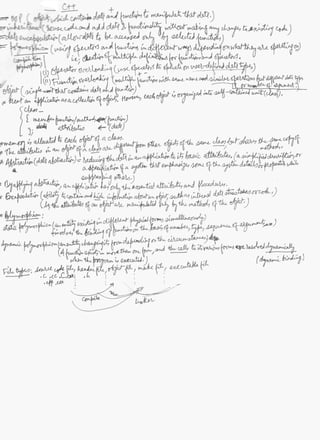 C++
OOP (object, which contains data and functions to manipulate that data)
inheritance (reuse code and add data & functionality without making any changes to existing code)
data encapsulation (allows data to be accessed only by selected functions)
polymorphism (using operators and functions in different ways depending on what they are operating on)
ie; creation of multiple definitions for functions and operators.
(i) Operator overloading (use operators to operate on user-defined data types)
(ii) Function overloading (multiple functions with same name and similar operations but different data type
(& number of arguments)
object (single unit that contains data and function)
an application are a collection of object. However each object is organized into self-contained unit (class).
{ class
{ member function/method (function)
attributes (data)
};
memory is allocated to each object of a class.
The attributes in an object of a class are different from other objects of the same class but shares the same copy of
methods.
Abstraction (data abstraction) = reducing the data in an application to its basic attributes, a simplified description or
a specification of a system that emphasizes some of the system details/properties while
suppressing others.
By applying abstraction, an application has only the essential attributes and procedures.
Encapsulation (ability to contain and hide information about an object, such as internal data structures or code,)
(ie, the attributes of an object are manipulated only by the methods of the object.)
Polymorphism:
static polymorphism (an entity existing in different physical forms simultaneously)
(involves the binding of functions, on the basis of number, type, sequence of arguments)
dynamic polymorphism (an entity changing its form depending on the circumstances)
(A function exists in more than one form, and the calls to its various forms are resolved dynamically
when the program is executed) (dynamic binding)
File types: source code file, header file, object file, make file, executable file
.h
.exe
compile linker